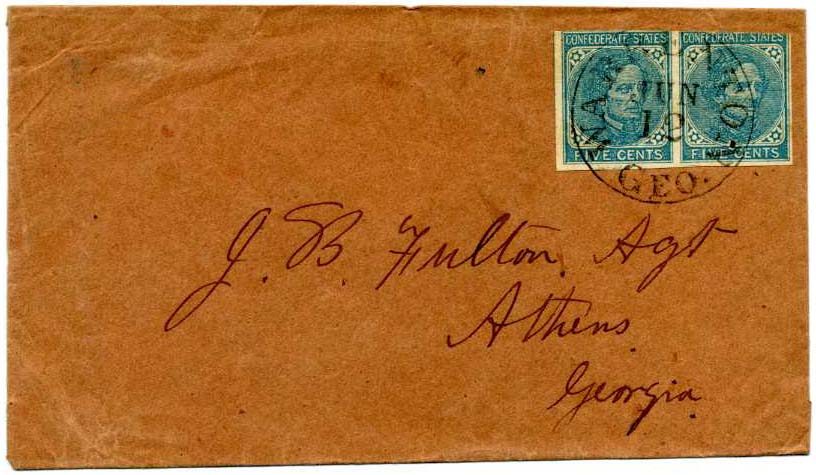 CONFEDERATE STATES CONFEDERATE STATES
JUN
19
FIVE CENTS FIVE CENTS
GEO.
J. B. Fulton, Agt
Athens
Georgia